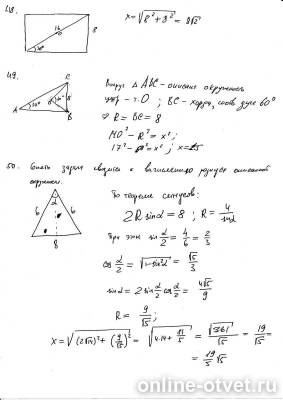 48.
16
8
30°
x = √8² + 8² = 8√2
49.
C
A
B
30°
8
Вокруг △ ABC - описана окружность
центр - т.O ; BC - хорда, соотв. дуге 60°
⇒ R = BC = 8
MO² - R² = x²;
17² - 8² = x²; x = 15
50. Снова задача сводится к вычислению радиуса описанной
окружности.
α
6
6
8
По теореме синусов:
2R sinα = 8 ; R = 4/sinα
При этом sin α/2 = 4/6 = 2/3
cos α/2 = √1-sin²α = √5/3
sinα = 2 sin α/2 cos α/2 = 4√5/9
R = 9/√5
= 19/√5 =
= 19/5 √5
online-otvet.ru